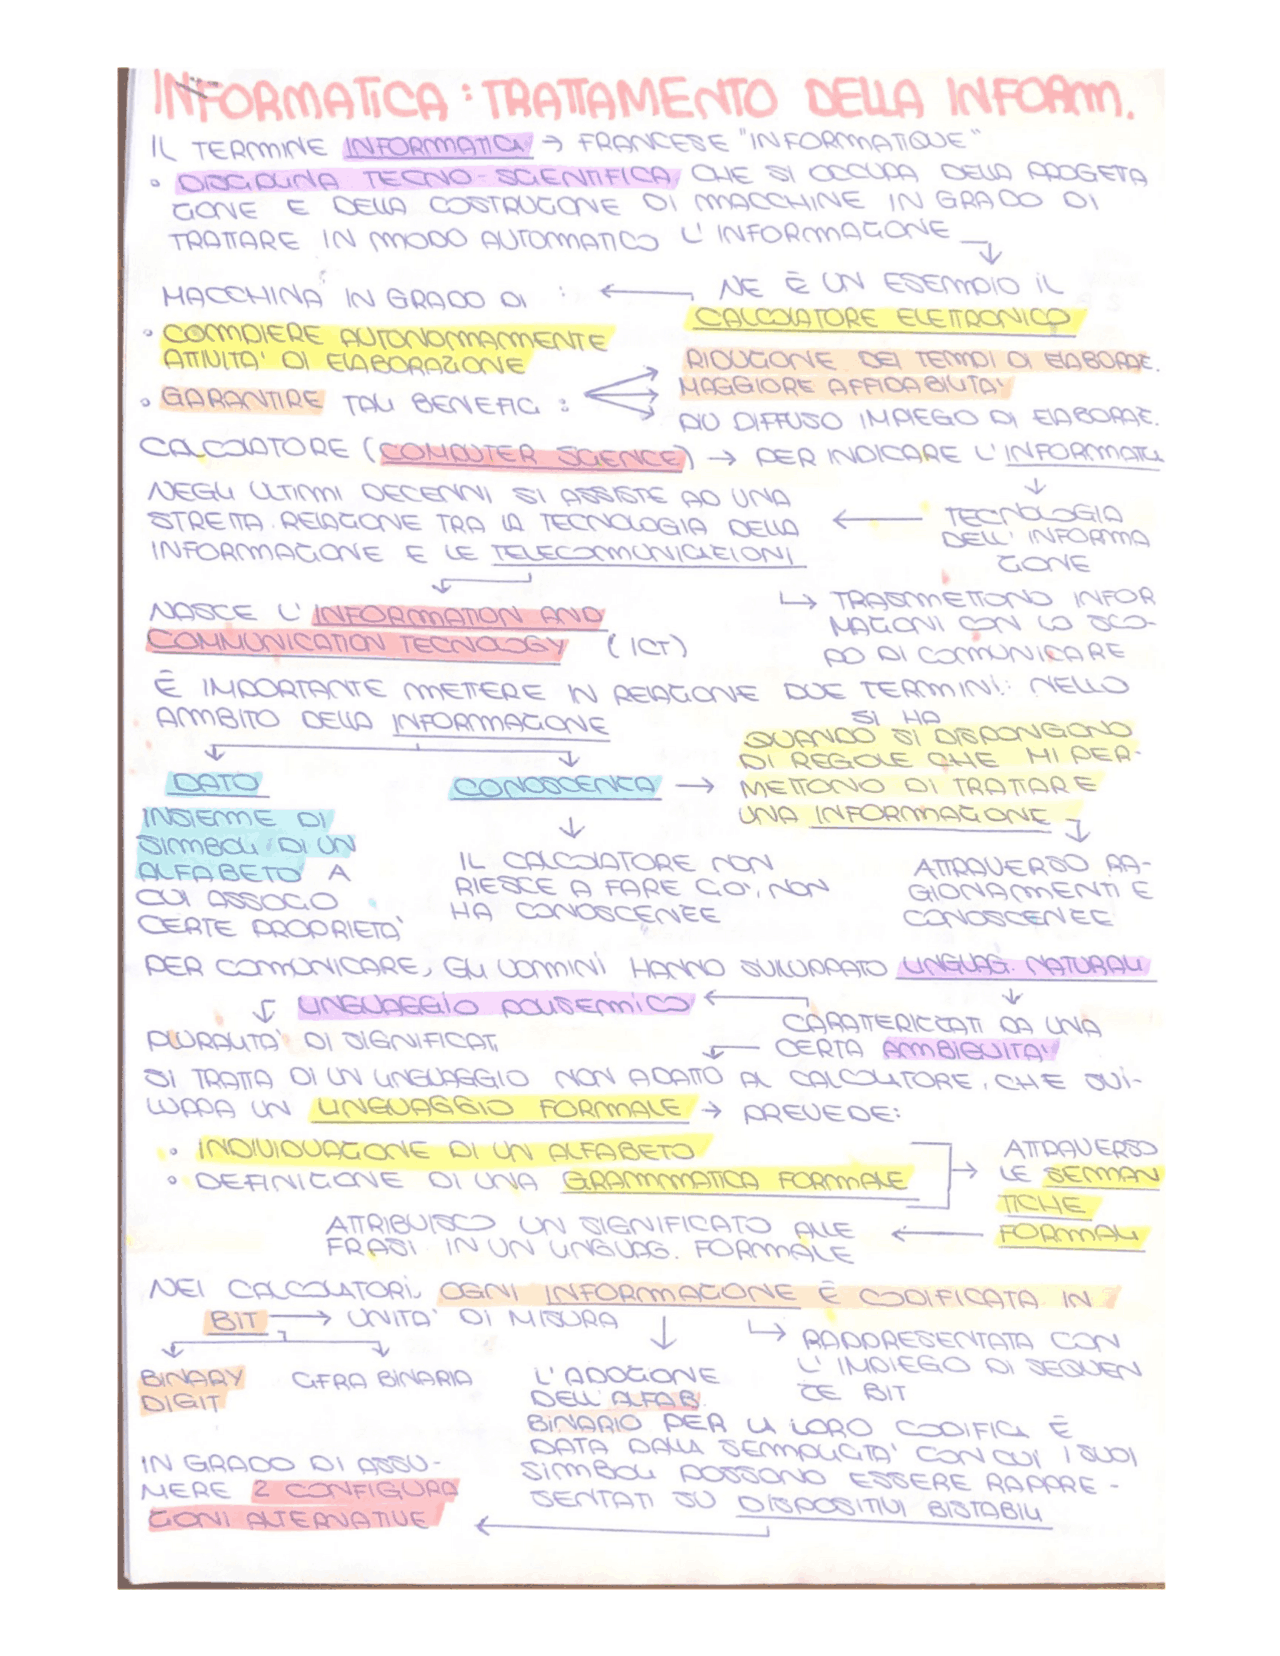 INFORMATICA : TRATTAMENTO DELLA INFORM.
IL TERMINE INFORMATICA → FRANCESE "INFORMATIQUE"
• DISCIPLINA TECNO-SCIENTIFICA, CHE SI OCCUPA DELLA PROGETA
ZIONE E DELLA COSTRUZIONE DI MACCHINE IN GRADO DI
TRATTARE IN MODO AUTOMATICO L'INFORMAZIONE
NE È UN ESEMPIO IL
CALCOLATORE ELETTRONICO
MACCHINA IN GRADO DI :
• COMPIERE AUTONOMAMENTE
ATTIVITA' DI ELABORAZIONE
• GARANTIRE TALI BENEFICI :
RIDUZIONE DEI TEMPI DI ELABORAZ.
MAGGIORE AFFIDABILITA'
PIÙ DIFFUSO IMPIEGO DI ELABORAZ.
CALCOLATORE (COMPUTER SCIENCE) → PER INDICARE L'INFORMATICA
TECNOLOGIA
DELL'INFORMA
ZIONE
NEGLI ULTIMI DECENNI SI ASSISTE AD UNA
STRETTA RELAZIONE TRA LA TECNOLOGIA DELLA
INFORMAZIONE E LE TELECOMUNICAZIONI
↳ TRASMETTONO INFOR
MAZIONI CON LO SCO-
PO DI COMUNICARE
NASCE L'INFORMATION AND
COMMUNICATION TECNOLOGY (ICT)
È IMPORTANTE METTERE IN RELAZIONE DUE TERMINI: NELLO
AMBITO DELLA INFORMAZIONE
DATO
INSIEME DI
SIMBOLI DI UN
ALFABETO A
CUI ASSOCIO
CERTE PROPRIETA'
CONOSCENZA →
SI HA
QUANDO SI DISPONGONO
DI REGOLE CHE MI PER-
METTONO DI TRATTARE
UNA INFORMAZIONE
IL CALCOLATORE NON
RIESCE A FARE CIO', NON
HA CONOSCENZE
ATTRAVERSO RA-
GIONAMENTI E
CONOSCENZE
PER COMUNICARE, GLI UOMINI HANNO SVILUPPATO LINGUAG. NATURALI
CARATTERIZZATI DA UNA
CERTA AMBIGUITA'
LINGUAGGIO POLISEMICO
PLURALITA' DI SIGNIFICATI
SI TRATTA DI UN LINGUAGGIO NON ADATTO AL CALCOLATORE, CHE SVI-
LUPPA UN LINGUAGGIO FORMALE → PREVEDE:
• INDIVIDUAZIONE DI UN ALFABETO
• DEFINIZIONE DI UNA GRAMMATICA FORMALE
ATTRAVERSO
LE SEMAN
TICHE
FORMALI
ATTRIBUISCO UN SIGNIFICATO ALLE
FRASI IN UN LINGUAG. FORMALE
NEI CALCOLATORI, OGNI INFORMAZIONE È CODIFICATA IN
BIT → UNITA' DI MISURA
BINARY
DIGIT
CIFRA BINARIA
↳ RAPPRESENTATA CON
L'IMPIEGO DI SEQUEN
ZE BIT
L'ADOZIONE
DELL'ALFAB.
BINARIO PER LA LORO CODIFICA È
DATA DALLA SEMPLICITA' CON CUI I SUOI
SIMBOLI POSSONO ESSERE RAPPRE-
SENTATI SU DISPOSITIVI BISTABILI
IN GRADO DI ASSU-
MERE 2 CONFIGURA
ZIONI ALTERNATIVE